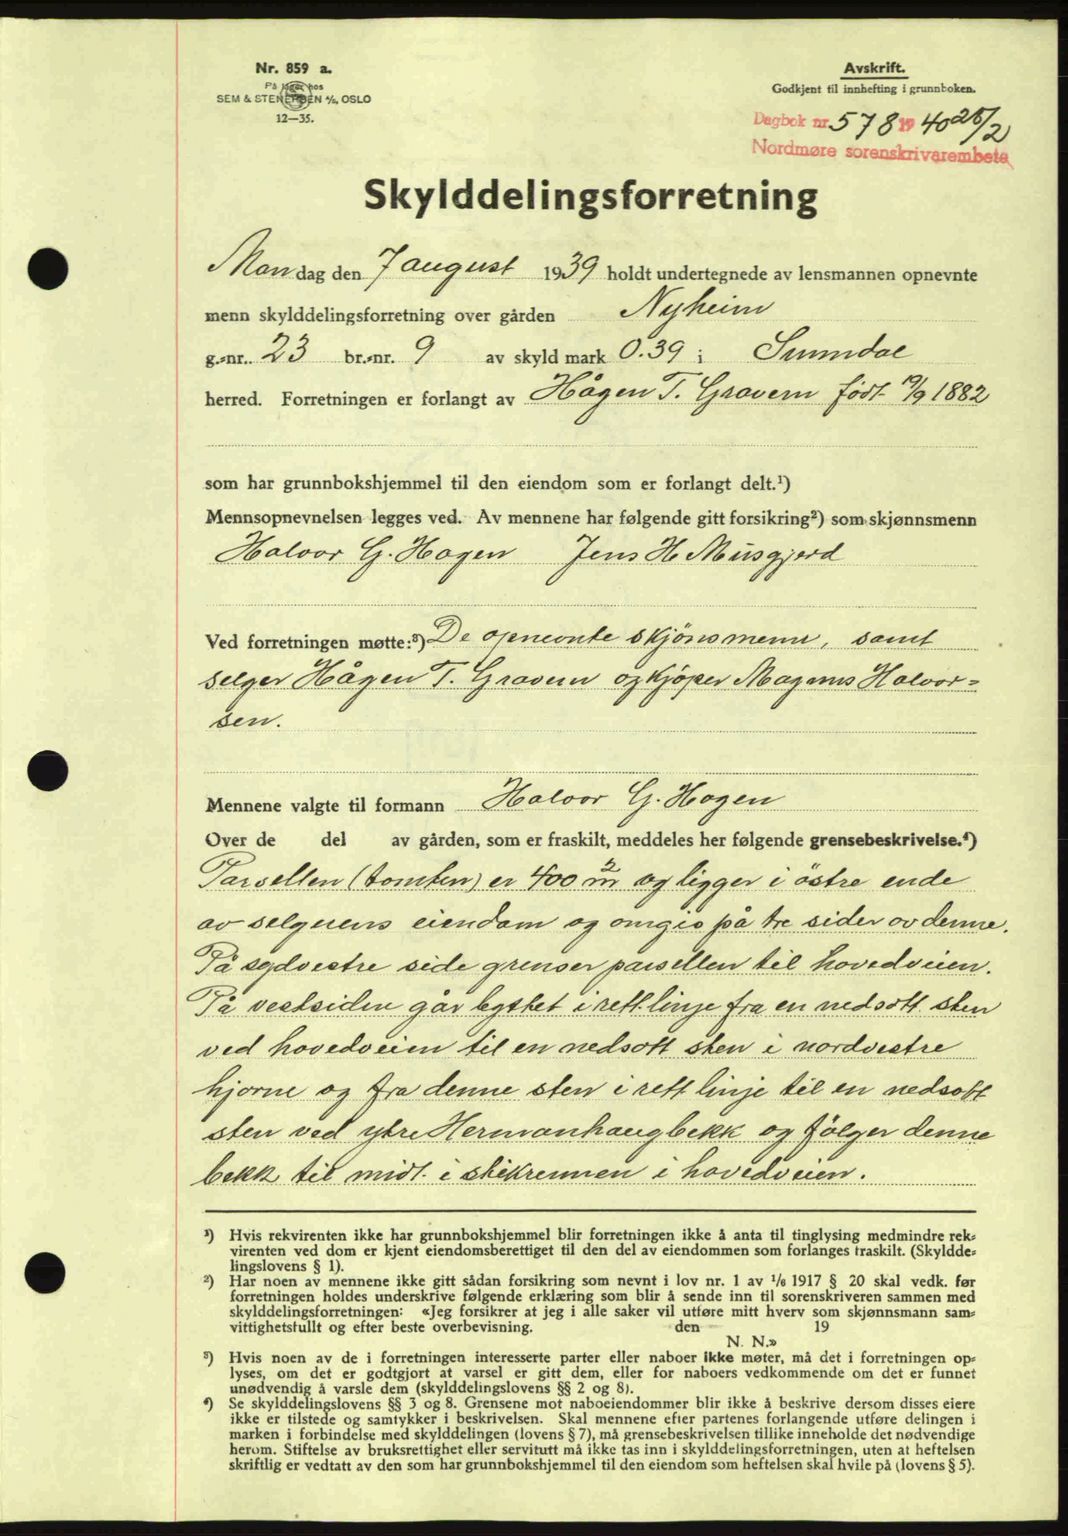 Nr. 859 a.
På lager hos
SEM & STENERSEN A/S, OSLO
12—35.
Avskrift.
Godkjent til innhefting i grunnboken.
Dagbok nr. 578 19 40 26/2
Nordmøre sorenskrivarembete
Skylddelingsforretning
Mandag den 7 august 1939 holdt undertegnede av lensmannen opnevnte
menn skylddelingsforretning over gården Nyheim
g.-nr. 23 br.-nr. 9 av skyld mark 0.39 i Sunndal
herred. Forretningen er forlangt av Hågen T. Gravem født 19/9 1882
som har grunnbokshjemmel til den eiendom som er forlangt delt.¹)
Mennsopnevnelsen legges ved. Av mennene har følgende gitt forsikring²) som skjønnsmenn
Halvor G. Hagen Jens H Musgjerd
Ved forretningen møtte:³) De opnevnte skjönsmenn, samt
selger Hågen T. Gravem og kjöper Magnus Halvor=
sen.
Mennene valgte til formann Halvor G. Hagen
Over de del av gården, som er fraskilt, meddeles her følgende grensebeskrivelse.⁴)
Parsellen (tomten) er 400 m² og ligger i östre ende
av selgerens eiendom og omgis på tre sider av denne.
På sydvestre side grenser parsellen til hovedveien.
På vestsiden går byttet i rett linje fra en nedsatt sten
ved hovedveien til en nedsatt sten i nordvestre
hjørne og fra denne sten i rett linje til en nedsatt
sten ved ytre Hermanhaugbekk og fölger denne
bekk til midt i stikrennen i hovedveien.
¹) Hvis rekvirenten ikke har grunnbokshjemmel blir forretningen ikke å anta til tinglysing medmindre rek-
virenten ved dom er kjent eiendomsberettiget til den del av eiendommen som forlanges fraskilt. (Skyldde-
lingslovens § 1).
²) Har noen av mennene ikke gitt sådan forsikring som nevnt i lov nr. 1 av 1/6 1917 § 20 skal vedk. før
forretningen holdes underskrive følgende erklæring som blir å sende inn til sorenskriveren sammen med
skylddelingsforretningen: «Jeg forsikrer at jeg i alle saker vil utføre mitt hverv som skjønnsmann sam-
vittighetsfullt og efter beste overbevisning. den 19
N. N.»
³) Hvis noen av de i forretningen interesserte parter eller naboer ikke møter, må det i forretningen op-
lyses, om det er godtgjort at varsel er gitt dem, eller for naboers vedkommende om det er funnet
unødvendig å varsle dem (skylddelingslovens §§ 2 og 8).
⁴) Se skylddelingslovens §§ 3 og 8. Grensene mot naboeiendommer blir ikke å beskrive dersom disses eiere
ikke er tilstede og samtykker i beskrivelsen. Skal mennene efter partenes forlangende utføre delingen i
marken i forbindelse med skylddelingen (lovens § 7), må grensebeskrivelsen tillike inneholde det nødvendige
herom. Stiftelse av bruksrettighet eller servitutt må ikke tas inn i skylddelingsforretningen, uten at heftelsen
skriftlig er vedtatt av den som har grunnbokshjemmel til den eiendom som heftelsen skal hvile på (lovens § 5).